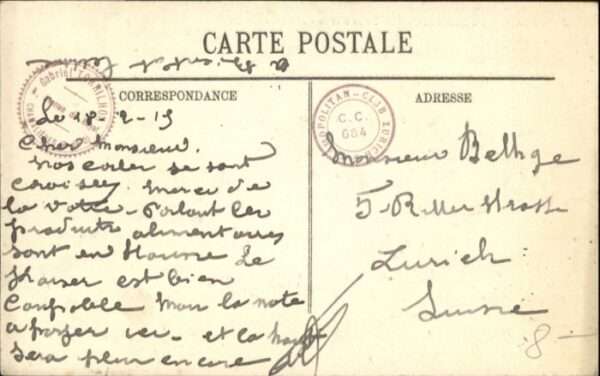 CARTE POSTALE
CORRESPONDANCE
ADRESSE
Gabriel TOURNILHON
COSMOPOLITAN-CLUB ZURICH
C. C.
684
Le 18-2-15
Cher Monsieur.
Nos cartes se sont
croisées. Merci de
la votre - Partout les
produits alimentaires
sont en hausse Le
Kaiser est bien
coupable mon la note
a payer - et la
sera plus encore
Monsieur
5
Zurich
Suisse
8-